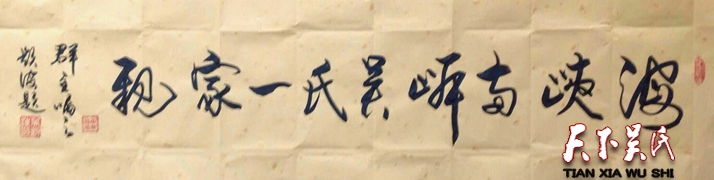 海峡两岸吴氏一家親
群主嘱
天下吴氏
TIAN XIA WU SHI